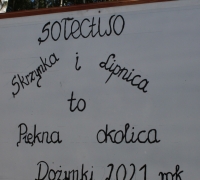 SOŁECTWO
Skrzynka i Lipnica
to
Piękna okolica
Dożynki 2021 rok